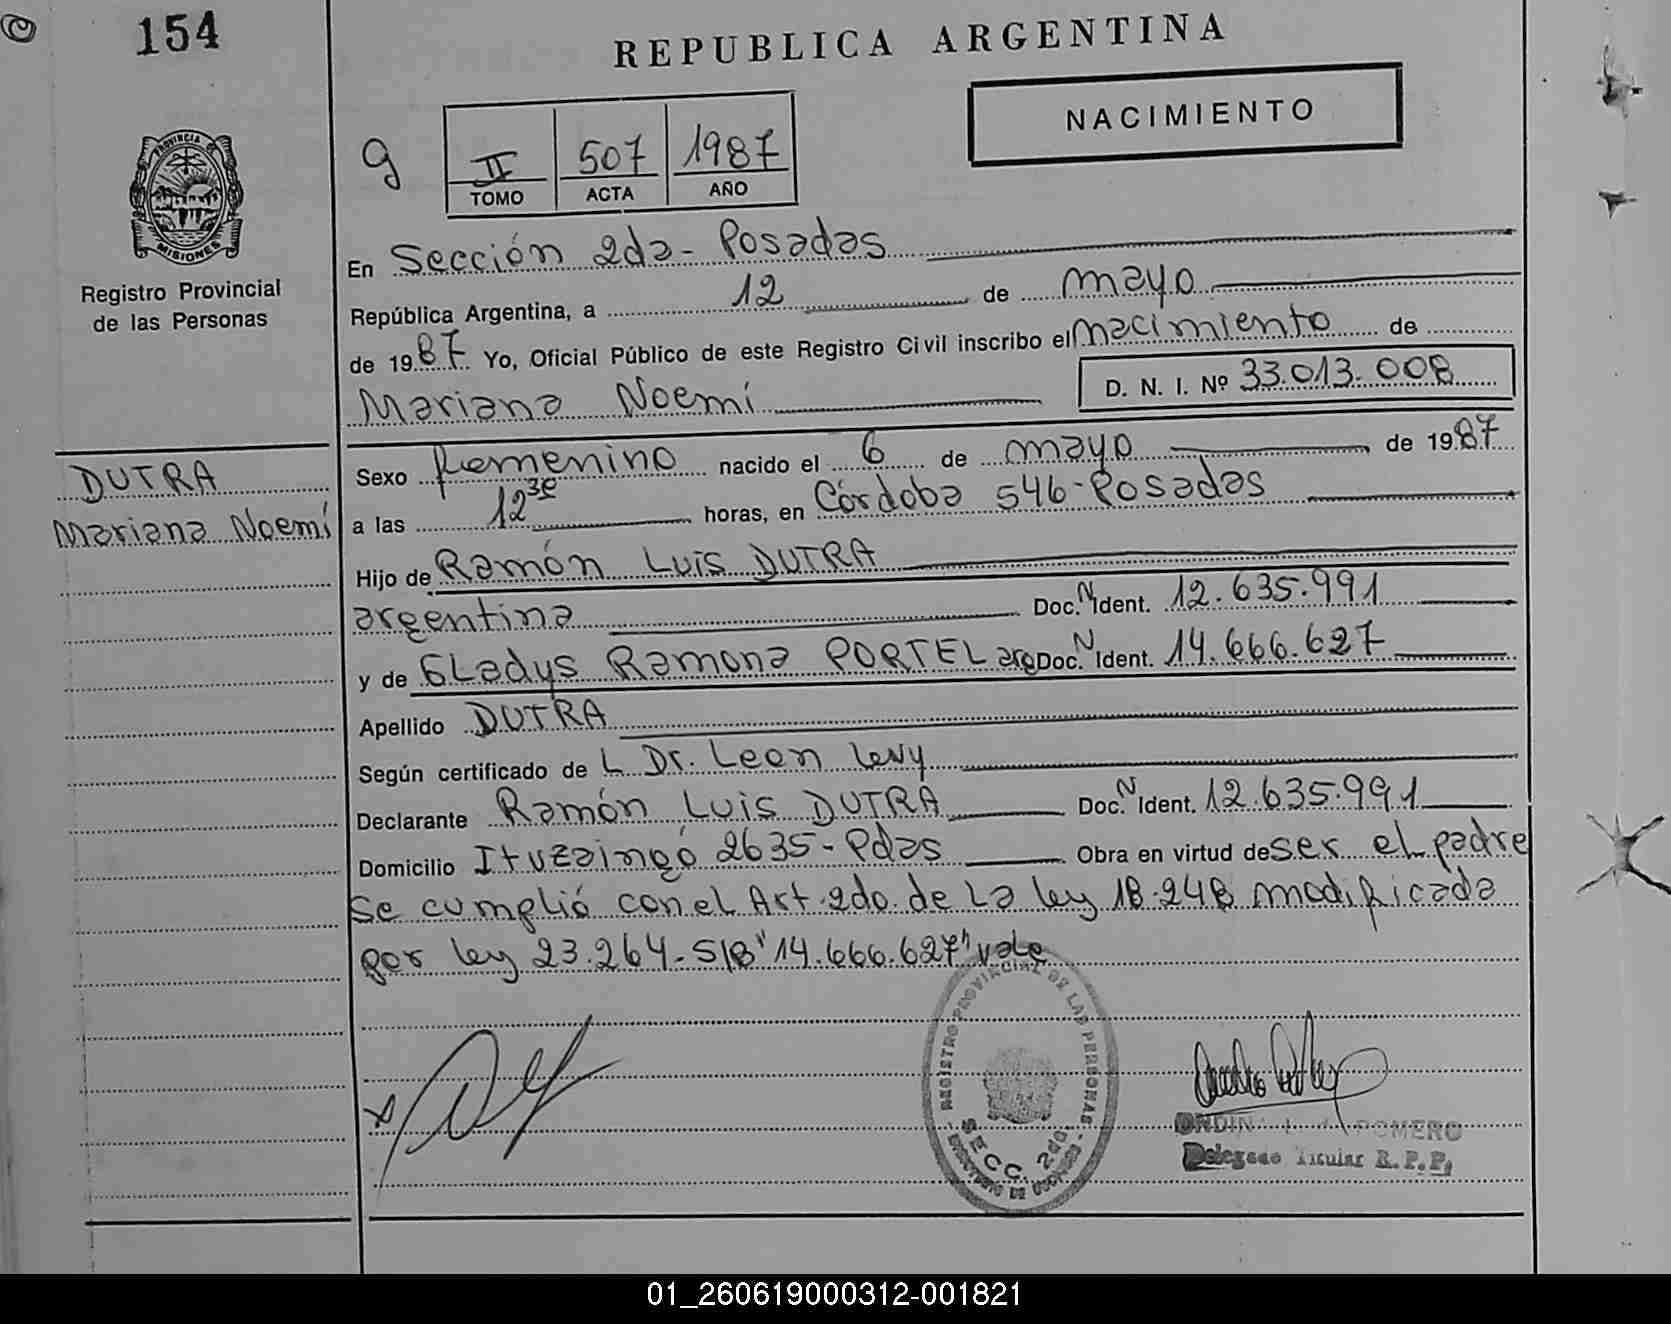 154
REPUBLICA ARGENTINA
NACIMIENTO
g
II 507 1987
TOMO ACTA AÑO
PROVINCIA DE
MISIONES
Registro Provincial
de las Personas
En Sección 2da - Posadas
República Argentina, a 12 de mayo
de 1987 Yo, Oficial Público de este Registro Civil inscribo el nacimiento de
Mariana Noemí D. N. I. Nº 33.013.008
DUTRA
Mariana Noemí
Sexo femenino nacido el 6 de mayo de 1987
a las 12 horas, en Córdoba 546 - Posadas
Hijo de Ramón Luis DUTRA
argentina Doc. N Ident. 12.635.991
y de Gladys Ramona PORTEL arg Doc. N Ident. 14.666.627
Apellido DUTRA
Según certificado de L Dr. Leon Levy
Declarante Ramón Luis DUTRA Doc. N Ident. 12.635.991
Domicilio Ituzaingó 2635 - Pdas Obra en virtud de ser el padre
Se cumplió con el Art. 2do. de la ley 18.248 modificada
por ley 23.264 - S/B "14.666.627" vale
REGISTRO PROVINCIAL DE LAS PERSONAS
SECC. 2da.
ROMERO
Delegado Titular R.P.P.
01_260619000312-001821